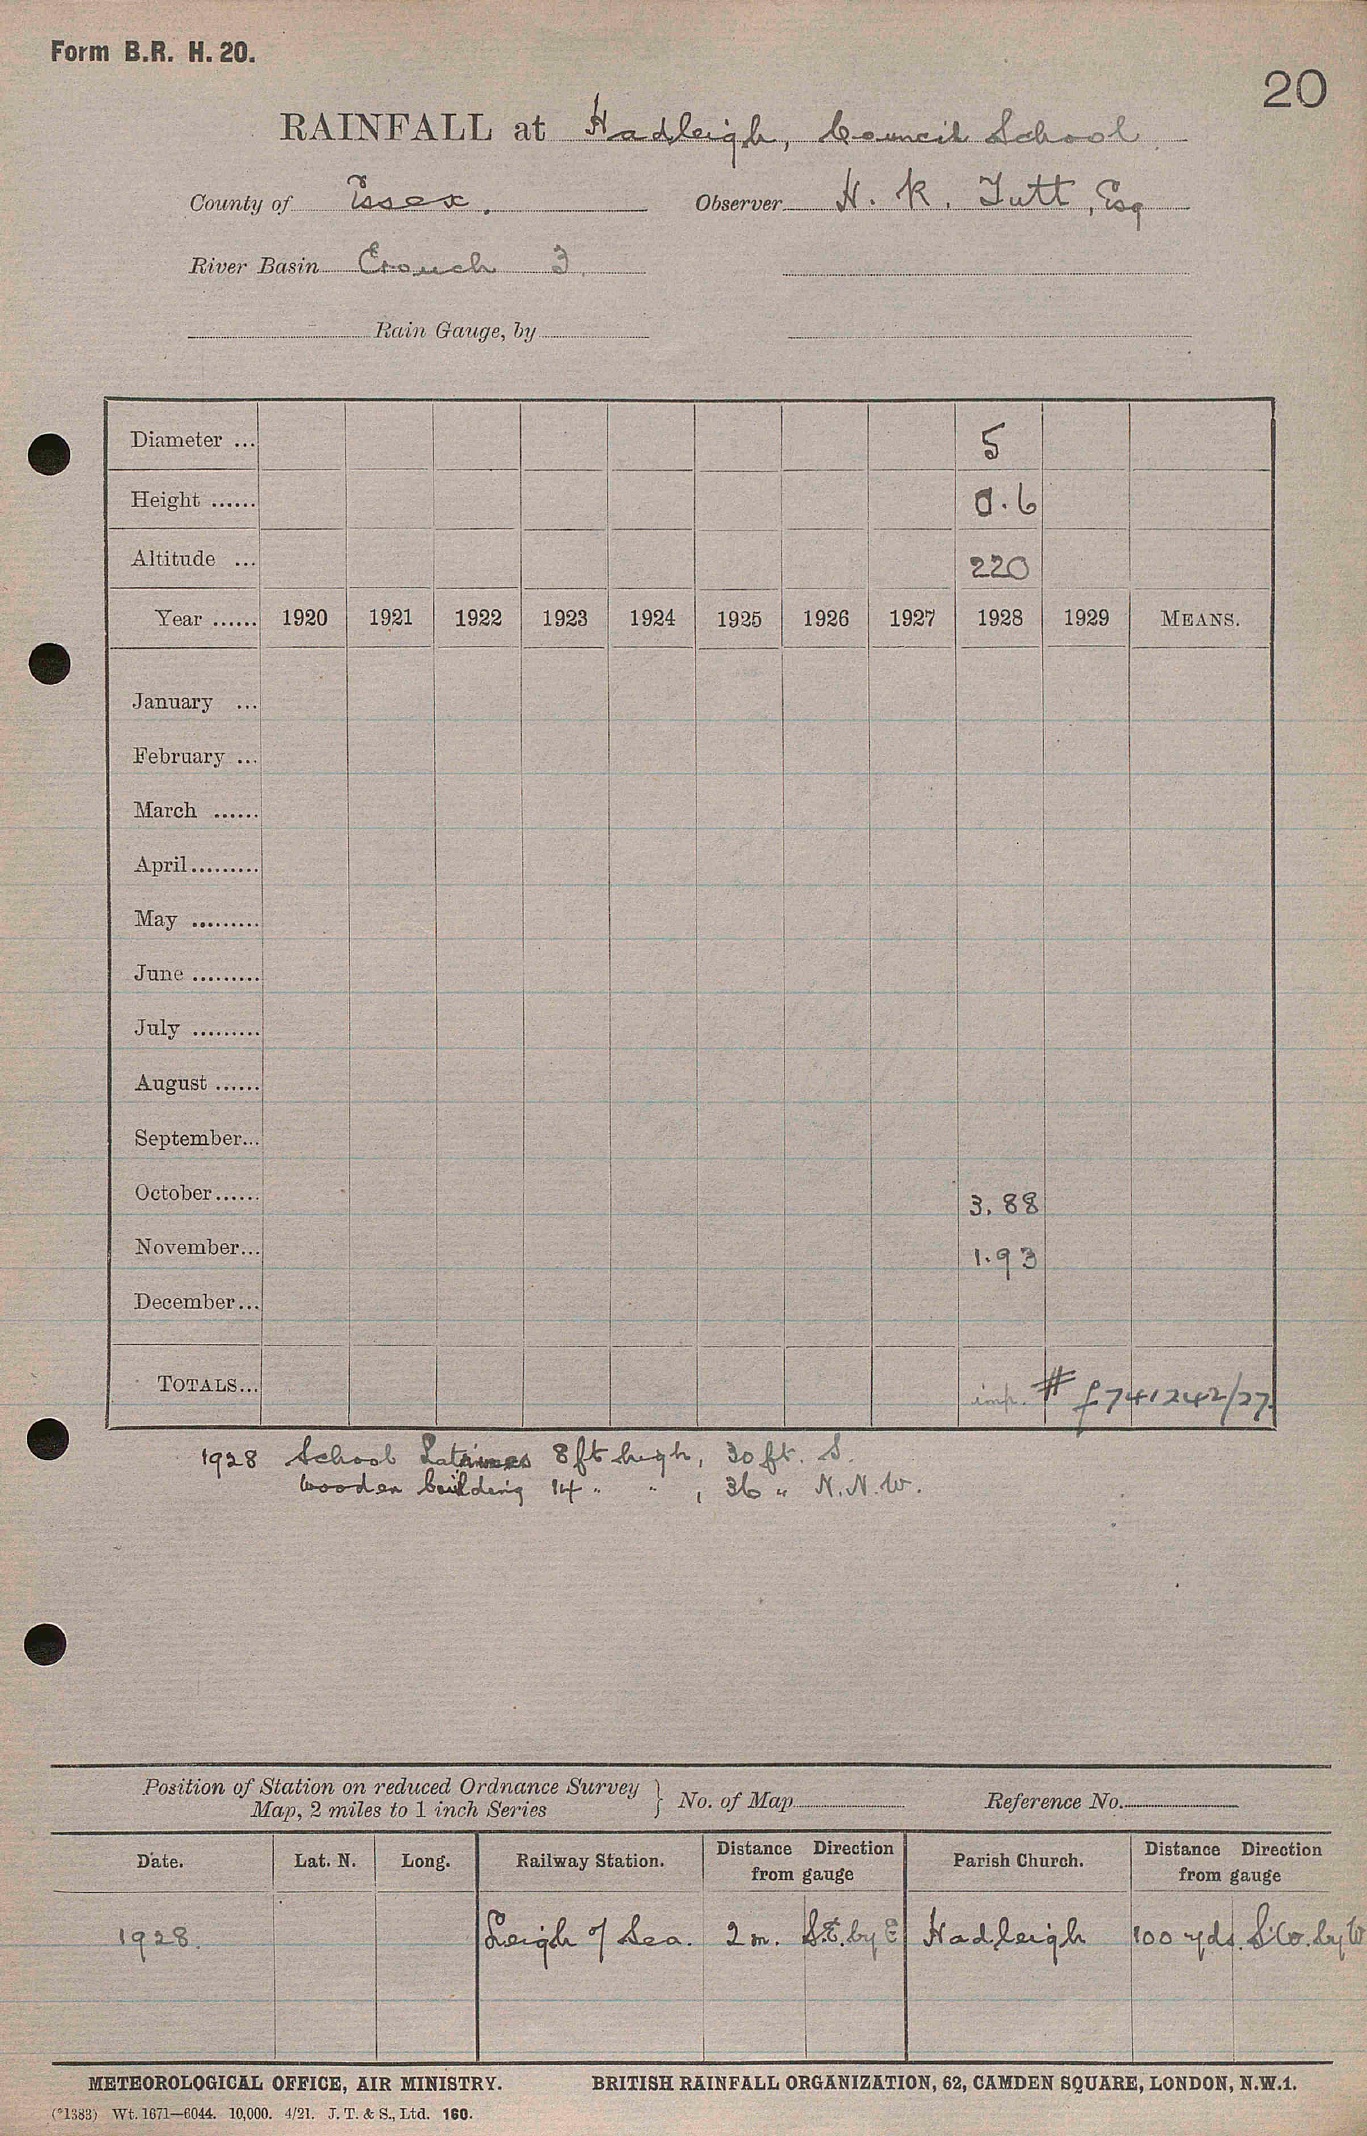 Form B.R. H. 20.
20
RAINFALL at Hadleigh, Council School
County of Essex. Observer H. K. Tutt, Esq
River Basin Crouch 3.
Rain Gauge, by
Diameter ... 5
Height ...... 0.6
Altitude ... 220
Year ...... 1920 1921 1922 1923 1924 1925 1926 1927 1928 1929 MEANS.
January ...
February ...
March ......
April.........
May .........
June .........
July .........
August ......
September...
October...... 3.88
November... 1.93
December...
TOTALS... imp. # f741242/27
1928 School Latrines 8ft high, 30 ft. S.
Wooden building 14 " " , 36 " N.N.W.
Position of Station on reduced Ordnance Survey
Map, 2 miles to 1 inch Series } No. of Map Reference No.
Date. Lat. N. Long. Railway Station. Distance Direction from gauge Parish Church. Distance Direction from gauge
1928. Leigh o/ Sea. 2 m. S.E. by E Hadleigh 100 yds. S.W. by W
METEOROLOGICAL OFFICE, AIR MINISTRY. BRITISH RAINFALL ORGANIZATION, 62, CAMDEN SQUARE, LONDON, N.W.1.
(*1383) Wt. 1671—6044. 10,000. 4/21. J. T. & S., Ltd. 160.